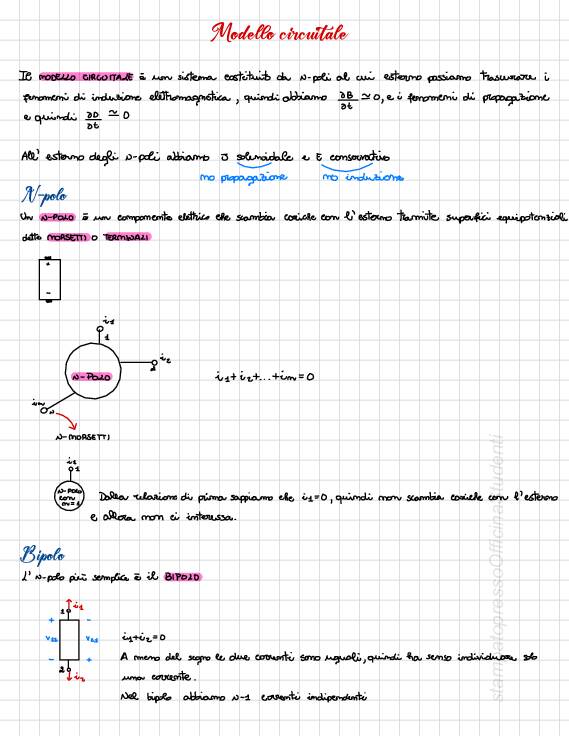 Modello circuitale
Il MODELLO CIRCUITALE è un sistema costituito da N-poli al cui esterno possiamo trascurare i
fenomeni di induzione elettromagnetica, quindi abbiamo ∂B/∂t ≃ 0, e i fenomeni di propagazione
e quindi ∂D/∂t ≃ 0
All'esterno degli N-poli abbiamo J solenoidale e E conservativo
no propagazione no induzione
N-polo
Un N-POLO è un componente elettrico che scambia cariche con l'esterno tramite superfici equipotenziali
dette MORSETTI o TERMINALI
+
-
i1
1
i2
2
N-POLO
i1+i2+...+in=0
in
N
N-MORSETTI
i1
1
N-POLO
con
n=1
Dalla relazione di prima sappiamo che i1=0, quindi non scambia cariche con l'esterno
e allora non ci interessa.
Bipolo
L'N-polo più semplice è il BIPOLO
1 i1
+ +
- -
2
i1+i2=0
A meno del segno le due correnti sono uguali, quindi ha senso individuare solo
una corrente.
Nel bipolo abbiamo N-1 correnti indipendenti
stampatopressoOfficinaStudenti